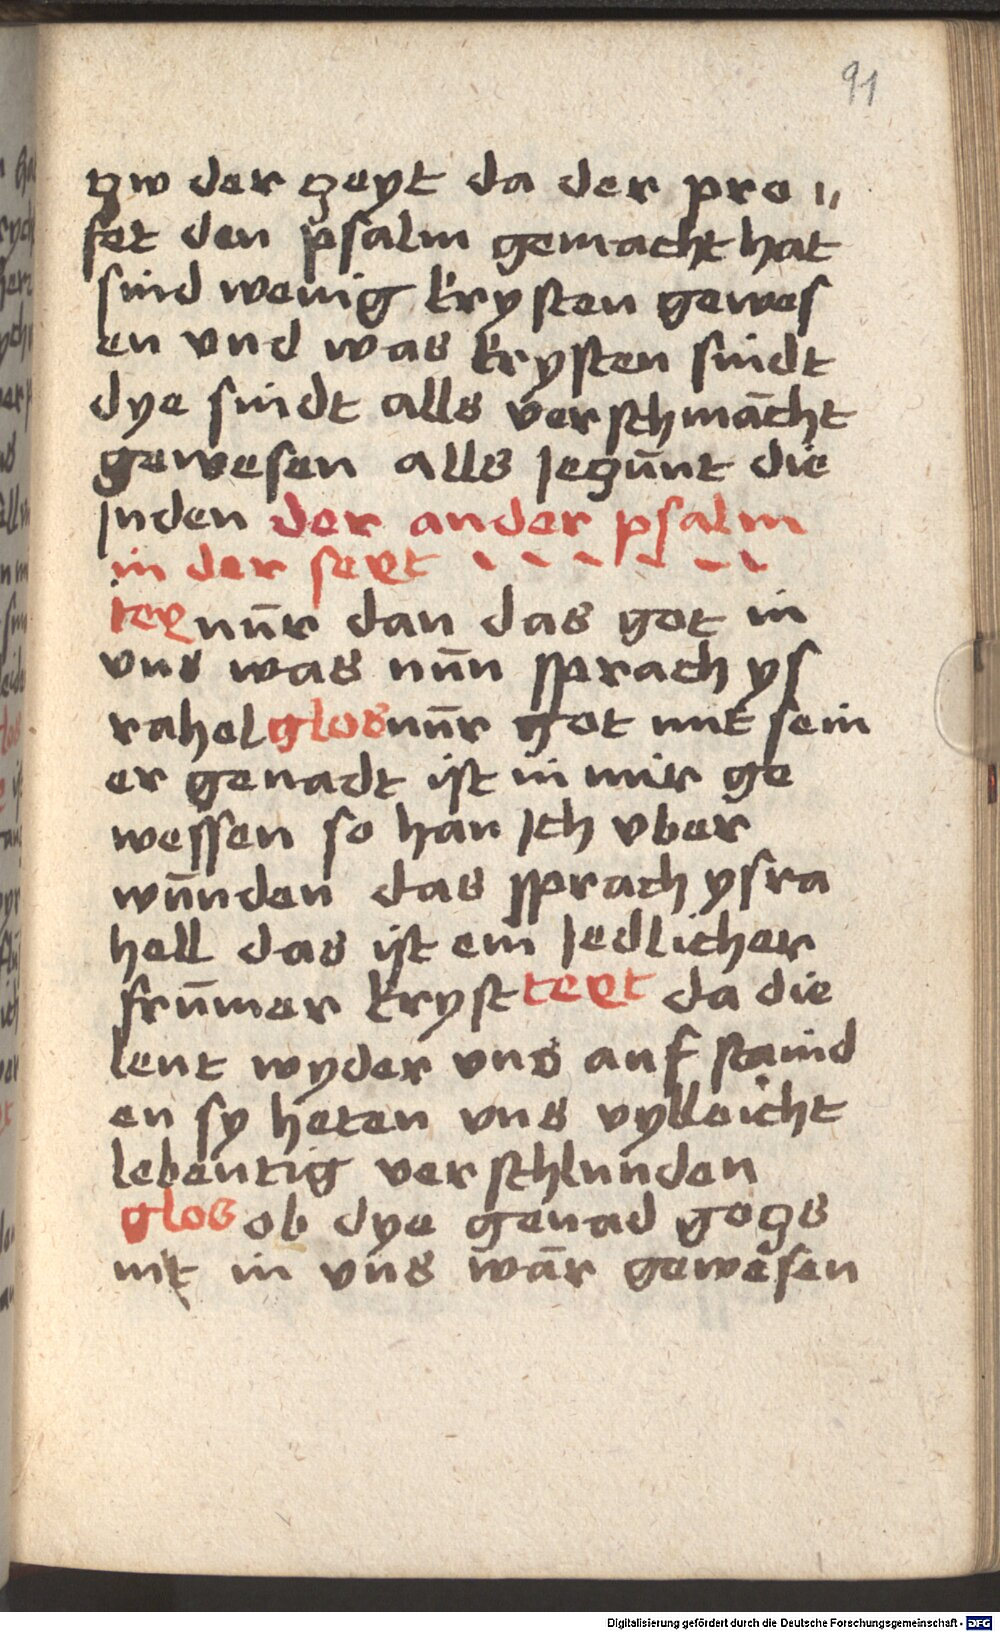 91
zw der zeyt da der pro 〃
fet den psalm gemacht hat
sind wenig krysten gewes
en vnd was krysten sindt
dye sindt alls verschmācht
gewesen alls Jezūnt die
Juden der ander psalm
in der sext
tex nūr dan das got in
vns was nūn sprach ys
rahel glos nūr got mit sein
er genadt ist in mir ge
wessen so han Ich vber
wūnden das sprach ysra
hell das ist ein Jedlicher
frūmer kryst text da die
leut wyder vns auf staind
en sy heten vns vylleicht
lebentig verschlunden
glos ob dye genad gozs
nit in vns wār gewesen
Digitalisierung gefördert durch die Deutsche Forschungsgemeinschaft - DFG